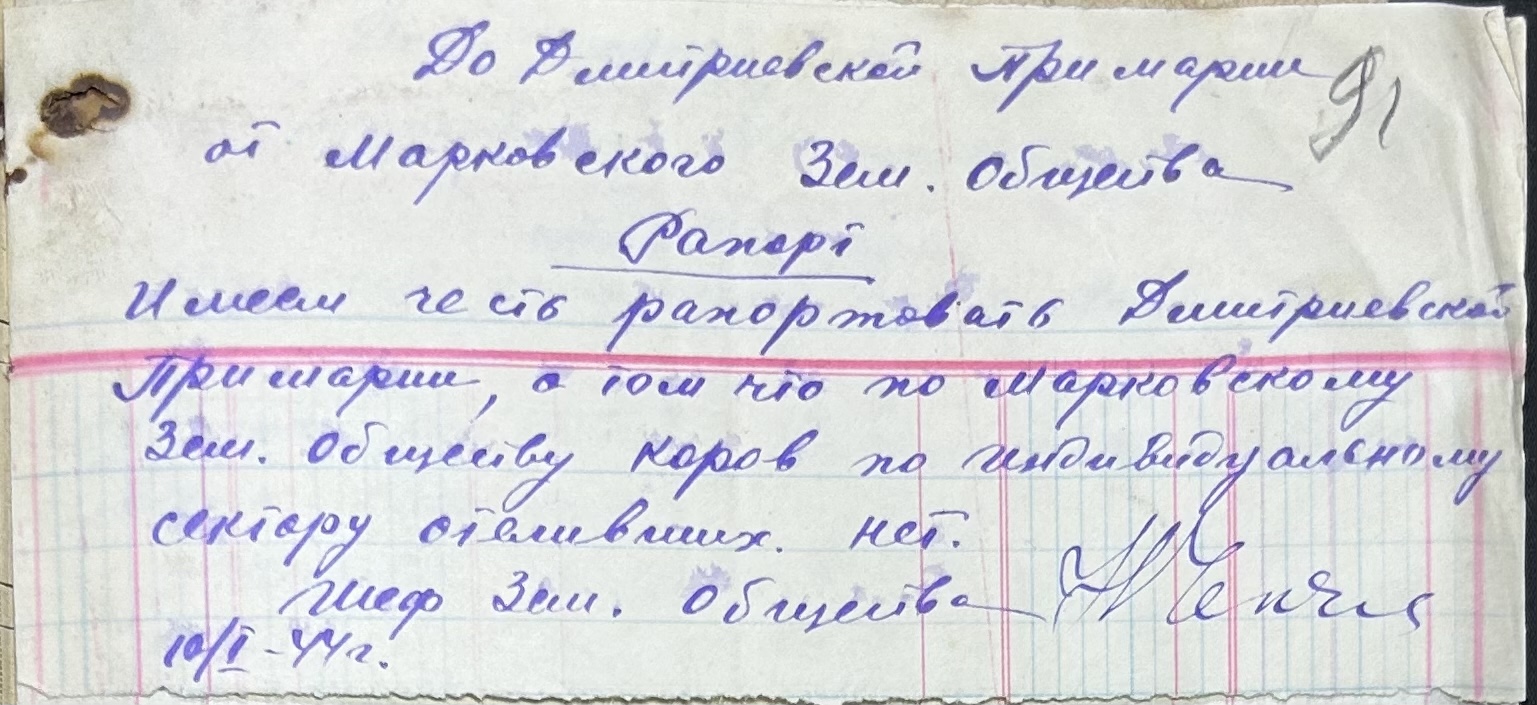 До Дмитриевской Примарии
91
от Марковского Зем. Общества
Рапорт
Имеем честь рапортовать Дмитриевской
Примарии, о том что по Марковскому
Зем. Обществу коров по индивидуальному
сектору отеливших. нет.
Шеф Зем. Общества
10/I-44г.